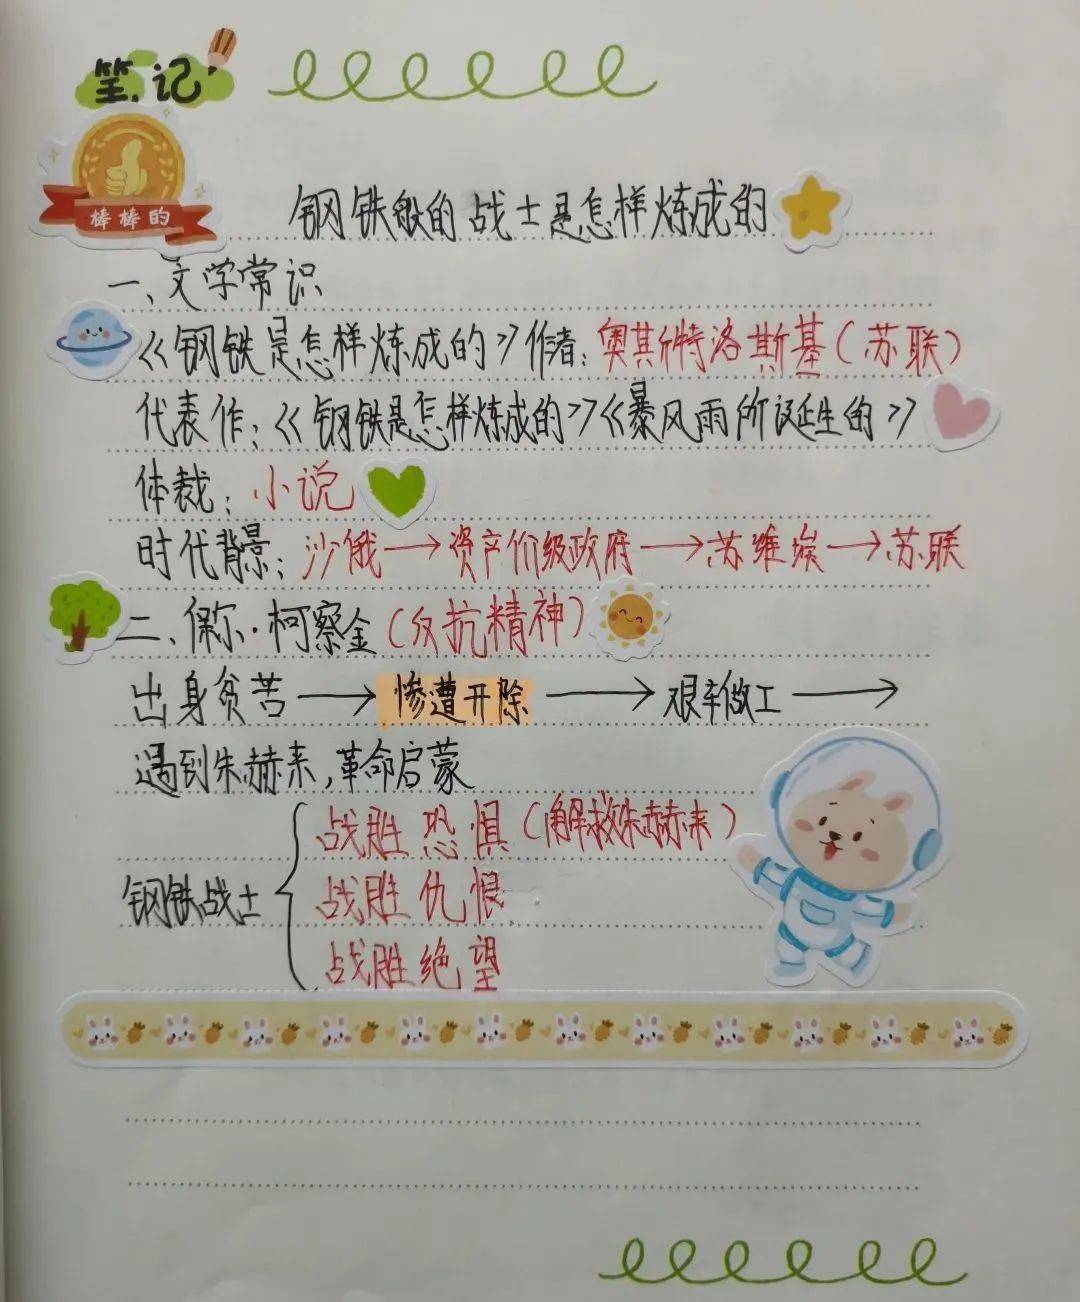 笔记
棒棒的
钢铁般的战士是怎样炼成的
一、文学常识
《钢铁是怎样炼成的》作者：奥斯特洛斯基（苏联）
代表作：《钢铁是怎样炼成的》《暴风雨所诞生的》
体裁：小说
时代背景：沙俄→资产价级政府→苏维埃→苏联
二、保尔·柯察金（反抗精神）
出身贫苦→惨遭开除→艰辛做工→
遇到朱赫来，革命启蒙
战胜恐惧（解救朱赫来）
钢铁战士
战胜仇恨
战胜绝望